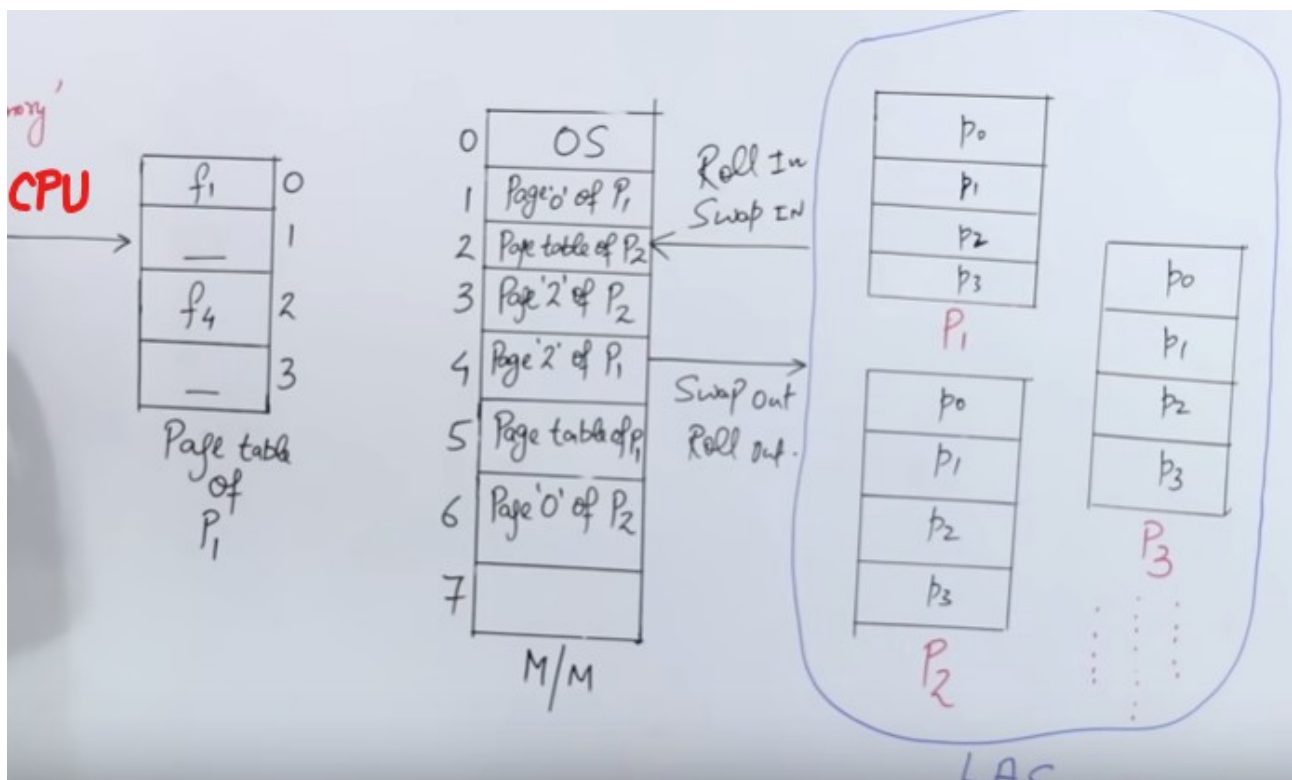 CPU
f1 0
— 1
f4 2
— 3
Page table
of
P1
0 OS
1 Page '0' of P1
2 Page table of P2
3 Page '2' of P2
4 Page '2' of P1
5 Page table of P1
6 Page '0' of P2
7
M/M
Roll In
Swap IN
Swap out
Roll out.
p0
p1
p2
p3
P1
p0
p1
p2
p3
P2
p0
p1
p2
p3
P3